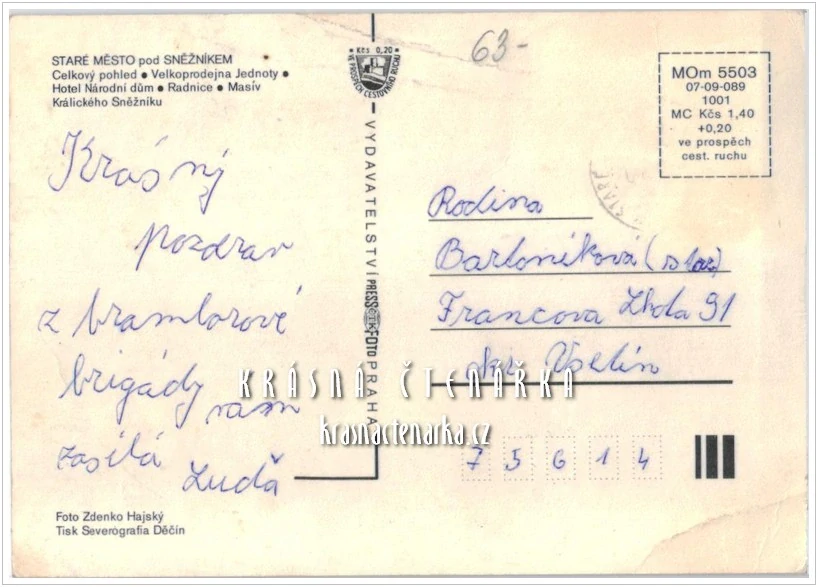 STARÉ MĚSTO pod SNĚŽNÍKEM
Celkový pohled ● Velkoprodejna Jednoty ●
Hotel Národní dům ● Radnice ● Masív
Králického Sněžníku
Krásný
pozdrav
z bramborové
brigády vám
zasílá
Luďa
Foto Zdenko Hajský
Tisk Severografia Děčín
Kčs 0,20
VE PROSPĚCH CESTOVNÍHO RUCHU
VYDAVATELSTVÍ PRESSFOTO PRAHA
63-
MOm 5503
07-09-089
1001
MC Kčs 1,40
+0,20
ve prospěch
cest. ruchu
STARÉ
Rodina
Bartoníková
Francova Lhota 91
okr Vsetín
75614
KRÁSNÁ ČTENÁŘKA
krasnactenarka.cz